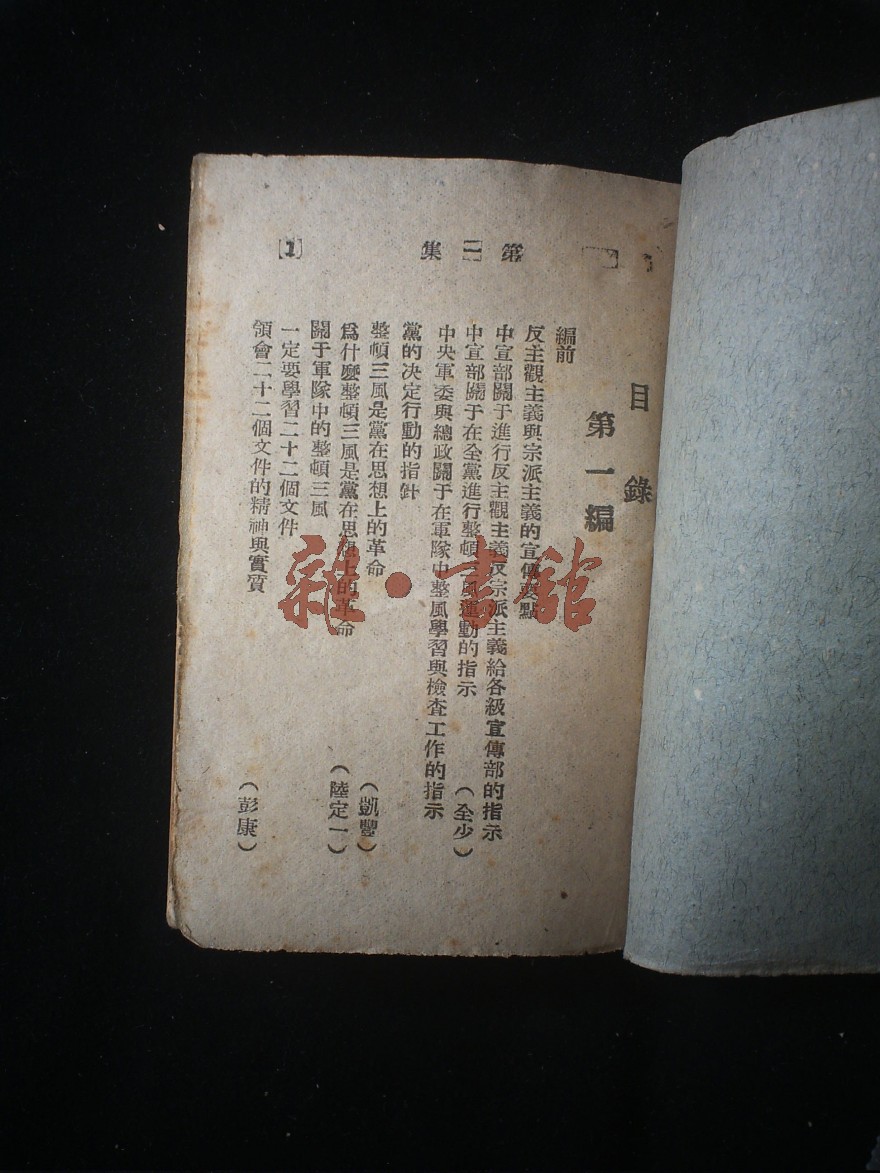 第二集
[1]
目錄
第一編
編前
反主觀主義與宗派主義的宣傳要點
中宣部關于進行反主觀主義反宗派主義給各級宣傳部的指示
中宣部關于在全黨進行整頓三風運動的指示
(全少)
中央軍委與總政關于在軍隊中整風學習與檢查工作的指示
黨的決定行動的指針
整頓三風是黨在思想上的革命
(凱豐)
爲什麼整頓三風是黨在思想上的革命
(陸定一)
關于軍隊中的整頓三風
一定要學習二十二個文件
領會二十二個文件的精神與實質
(彭康)
雜·書館